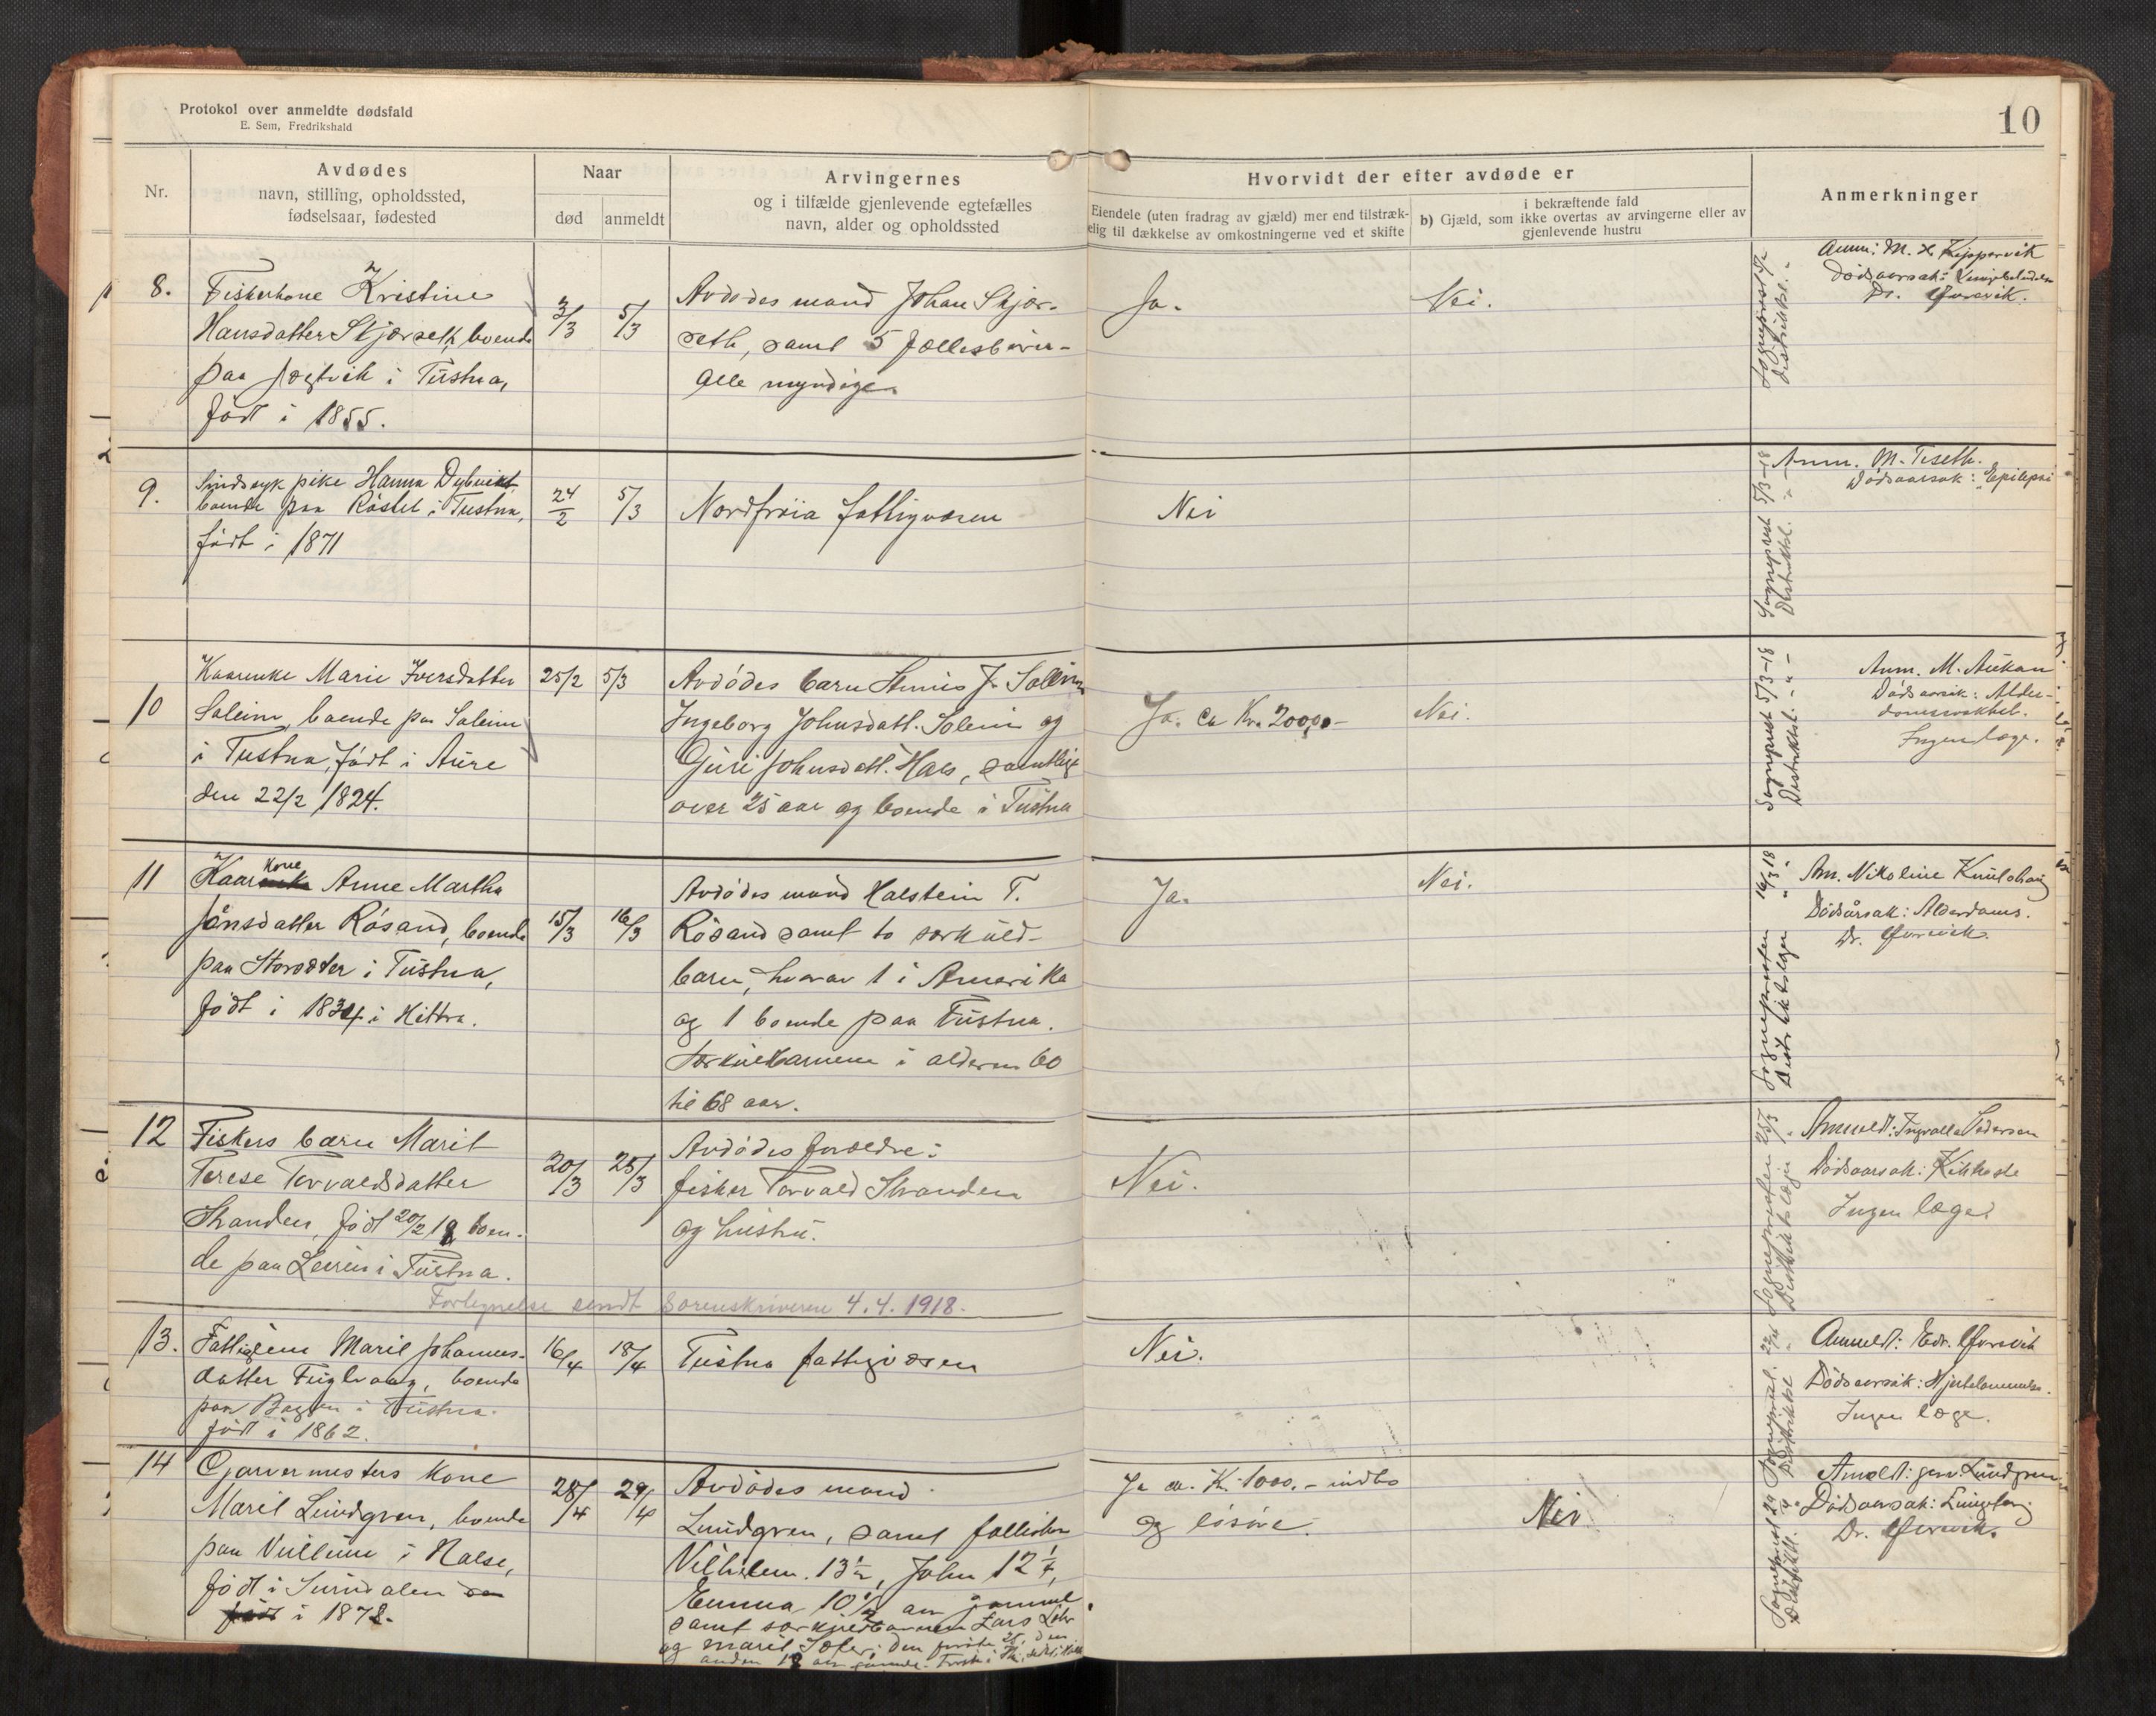 Protokol over anmeldte dødsfald
E. Sem, Fredrikshald
10
Nr.
Avdødes
navn, stilling, opholdssted,
fødselsaar, fødested
Naar
død
anmeldt
Arvingernes
og i tilfælde gjenlevende egtefælles
navn, alder og opholdssted
Hvorvidt der efter avdøde er
Eiendele (uten fradrag av gjæld) mer end tilstræk-
elig til dækkelse av omkostningerne ved et skifte
i bekræftende fald
b) Gjæld, som ikke overtas av arvingerne eller av
gjenlevende hustru
Anmerkninger
8.
Fiskerkone Kristine
Hansdatter Skjærseth, boende
paa Jægtvik i Tustna,
født i 1855.
3/3
5/3
Avdødes mand Johan Skjær-
seth, samt 5 fællesbørn -
Alle myndige.
Ja.
Nei.
Sogneprest 5/3
Distriktsl. "
Anm: M. H. Kjøpsvik
Dødsaarsak:
Dr. Grevik.
9.
Sindssyk pike Hanna Dybvik,
boende paa Røslet i Tustna,
født i 1871
24/2
5/3
Nordfrøia fattigvæsen
Nei
Sogneprest 5/3-18
Distriktsl. " -
Anm. M. Tiseth.
Dødsaarsak: Epilepsi
10
Kaarenke Marie Iversdatter
Soleim, boende paa Soleim
i Tustna, født i Aure
den 22/2 1824.
25/2
5/3
Avdødes barn J. Soleim
Ingeborg Johnsdatt. Soleim og
Guri Johnsdatt. Hals, samtlige
over 25 aar og boende i Tustna
Ja. ca Kr. 2000,-
Nei.
Sogneprest 5/3-18
Distriktsl. - " -
Anm. M. Aukan
Dødsaarsak: Alder-
domssvakhet.
Ingen læge.
11
Kaarkone Anne Martha
Jonsdatter Røsand, boende
paa Storoddен i Tustna,
født i 1834 i Hittra.
15/3
16/3
Avdødes mand Halstein T.
Røsand samt to særkuld-
barn, hvorav 1 i Amerika
og 1 boende paa Tustna.
Særkuldbarnene i alderen 60
til 68 aar.
Ja.
Nei.
Sognepresten 16/3 18
Distriktslægen "
An. Nikoline Knutshaug
Dødsårsak: Alderdoms.
Dr. Grevik.
12
Fiskers barn Marit
Terese Torvaldsdatter
Stranden, født 20/2 18 boen-
de paa Leirin i Tustna.
20/3
25/3
Avdødes forældre:
fisker Torvald Stranden
og hustru.
Nei.
Sognepresten 25/3
Distriktslægen "
Anmeldt: Ingvalla Pedersen
Dødsaarsak: Kikhoste
Ingen læge
Fortegnelse sendt Sorenskriveren 4.4.1918.
13.
Fattiglem Marit Johannes-
datter Fuglvaag, boende
paa Bagen i Tustna.
født i 1862.
16/4
18/4
Tustna fattigvæsen
Nei.
Sogneprest.
Distriktslæge "
Anmeldt: Edv. Grevik
Dødsaarsak: Hjertelammelse.
Ingen læge.
14
Garvermesters kone
Marit Lundgren, boende
paa Vullum i Halse,
født i Surndalen
i 1872.
28/4
29/4
Avdødes mand
Lundgren, samt fællesbn
Vilhelm. 13½, John 12¼,
Emma 10½ aar gammel
samt særkuldbarnene Lars
og Marit ; den første 25, den
anden 18 aar gamle.
Ja ca. K. 1000.- indbo
og løsøre.
Nei
Sogneprest
Distriktsl.
Anmeldt: garv. Lundgren
Dødsaarsak: Lungebet.
Dr. Grevik.